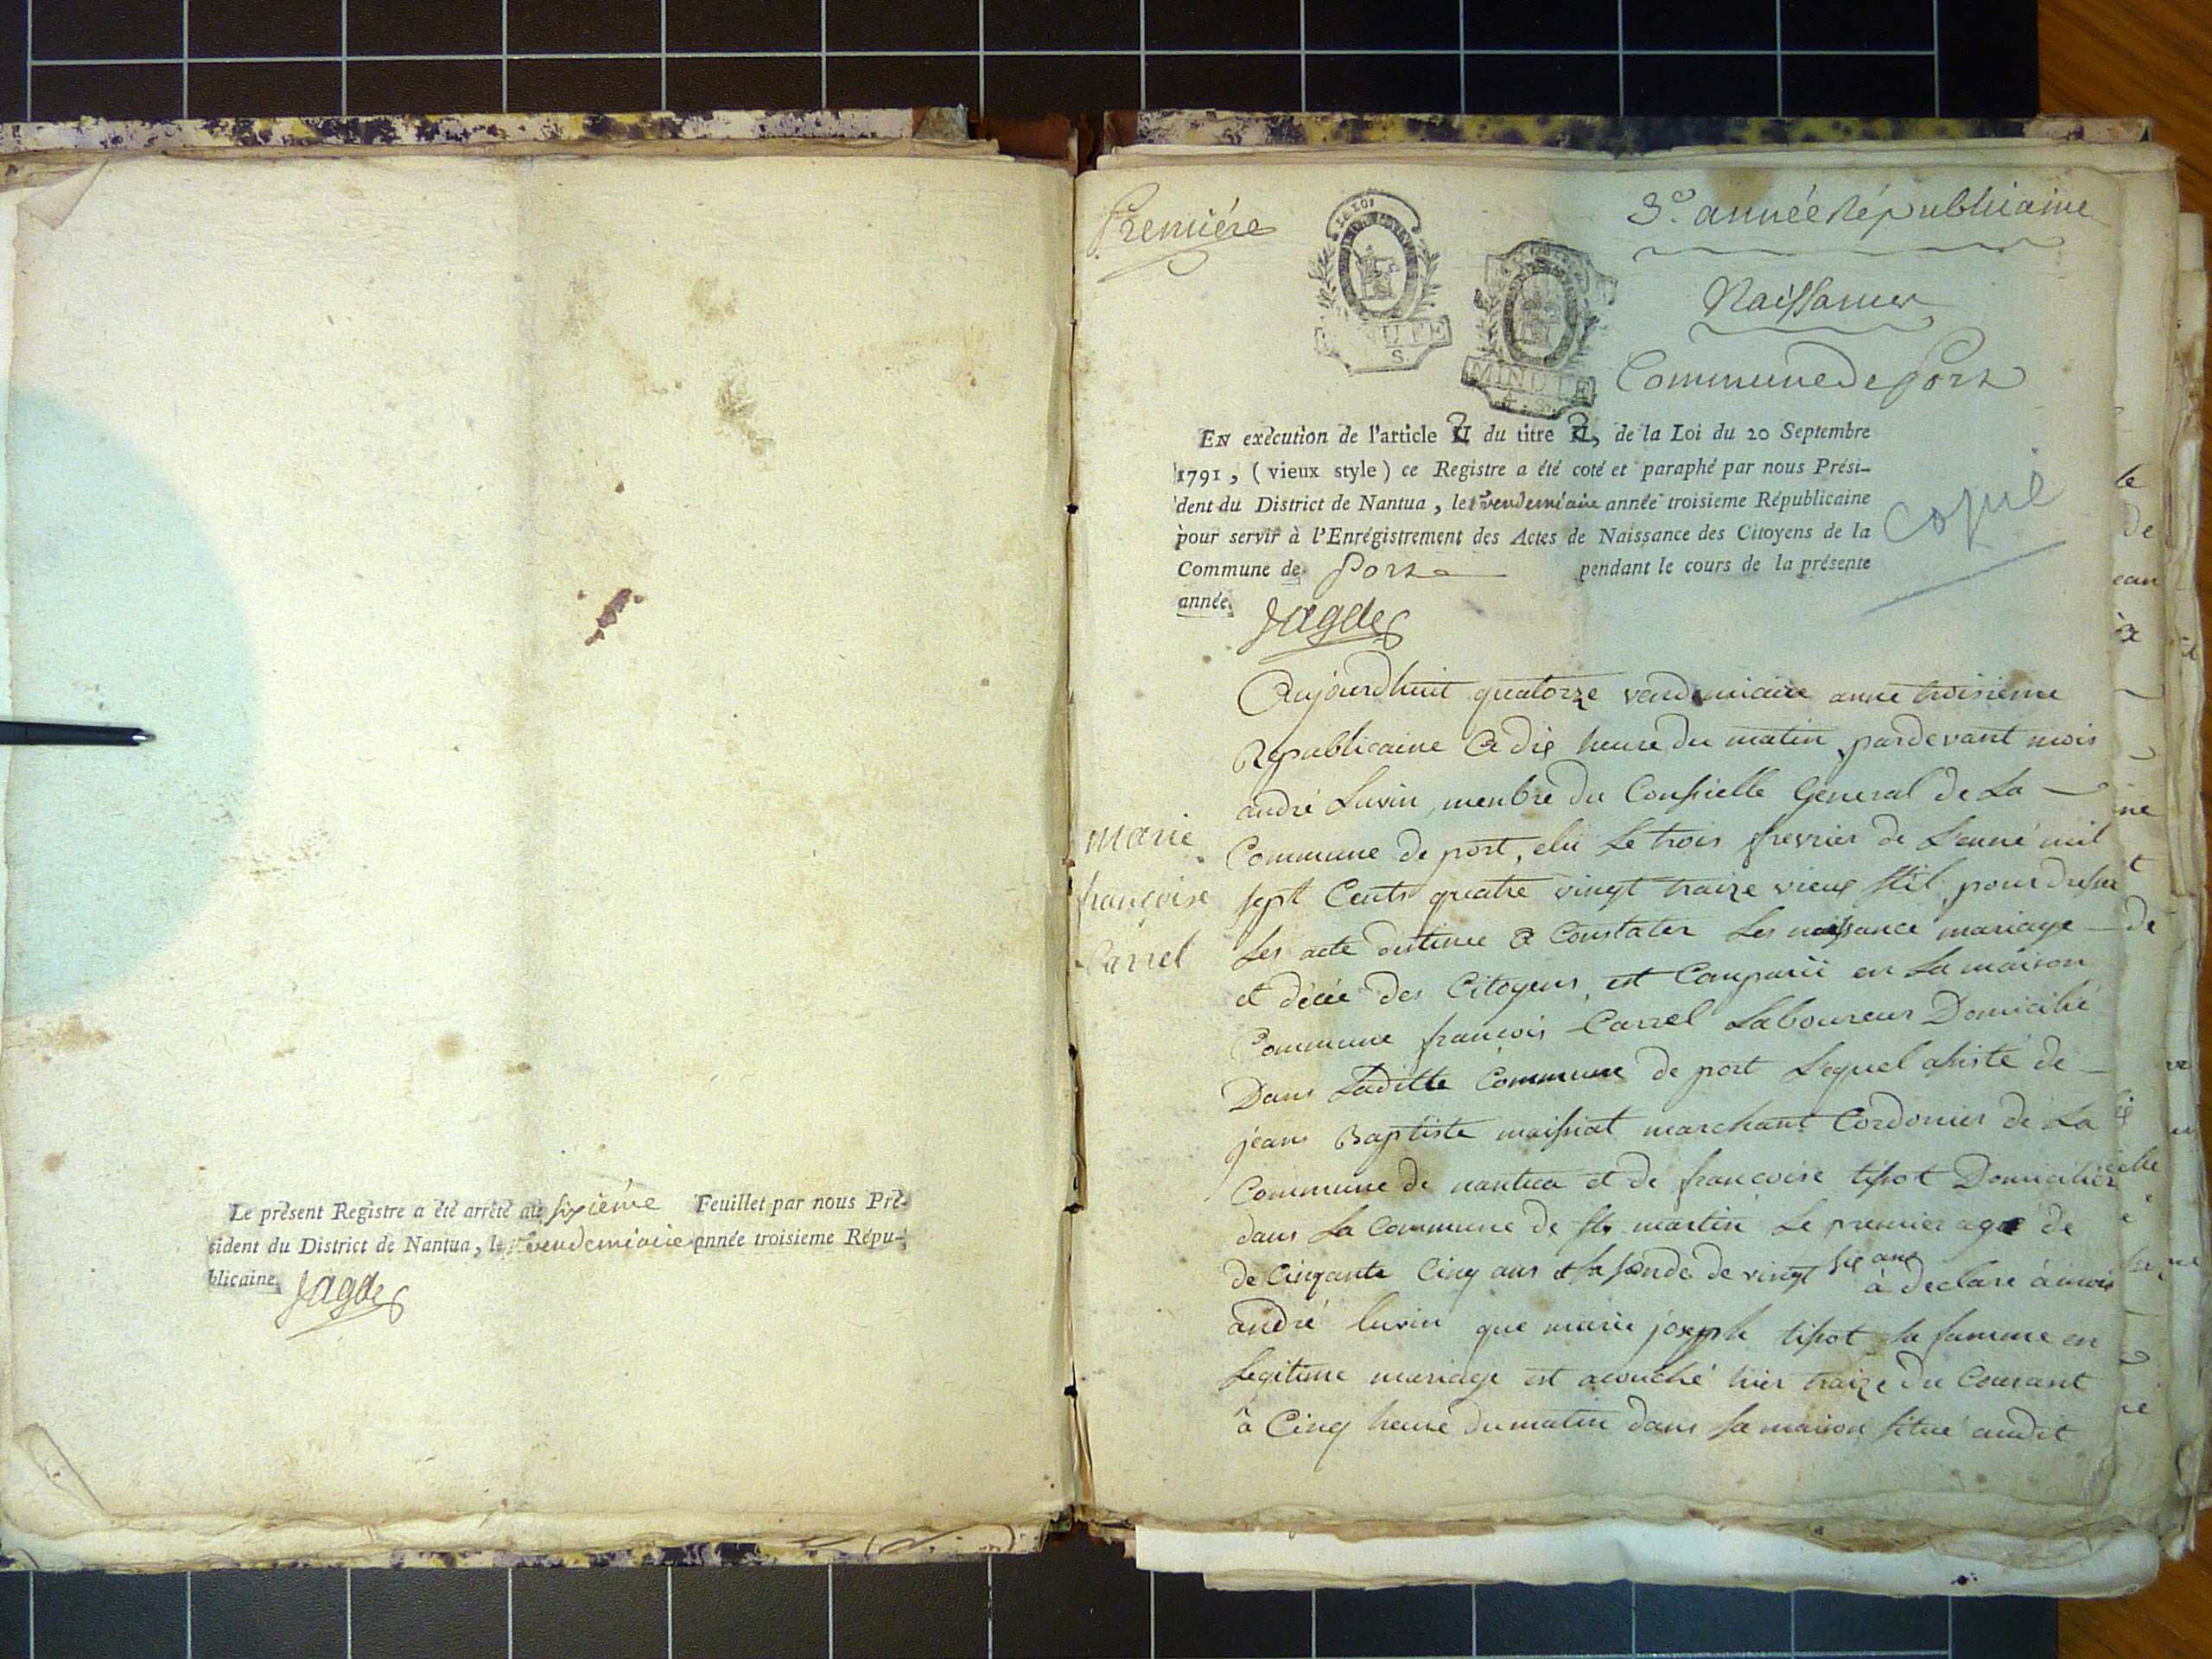 Le présent Registre a été arrêté au sixiéme Feuillet par nous Pré-
sident du District de Nantua, le 1er vendemiaire année troisieme Répu-
blicaine.
Jagde
Premiére
LA LOI
MINUTE
S.
MINUTE
3e. année Républicaine
Naissances
Commune de Port
EN exécution de l'article II du titre II, de la Loi du 20 Septembre
1791, (vieux style) ce Registre a été coté et paraphé par nous Prési-
dent du District de Nantua, le 1er vendemiaire année troisieme Républicaine
pour servir à l'Enrégistrement des Actes de Naissance des Citoyens de la
Commune de Port pendant le cours de la présente
année.
Jagde
copie
marie
françoise
Carrel
Aujourdhuit quatorze vendemiaire anne troisieme
Republicaine a dix heure du matin pardevant mois
andré Luvin, menbre du Conssielle Géneral de La
Commune de port, elu Le trois fevrier de L'anné mil
sept Cents quatre vingt traize vieux stil, pour dresser
Les acte destinee a Constater Les naissance mariage
et décée des Citoyens, est Comparü en La maison
Commune françois Carrel Laboureur Domicilié
Dans Laditte Commune de port Lequel assisté de
jeans Baptiste maissiat marchant Cordonier de La
Commune de nantua et de francoise tissot Domicilier
dans La Commune de st martin Le premier age de
de Cinqante Cinq ans et la segonde de vingt six ans à declare à mois
andré luvin que marie joseph tissot sa famme en
Legitime mariage est acouché hier traize du Courant
à Cinq heure du matin dans sa maison situé audit